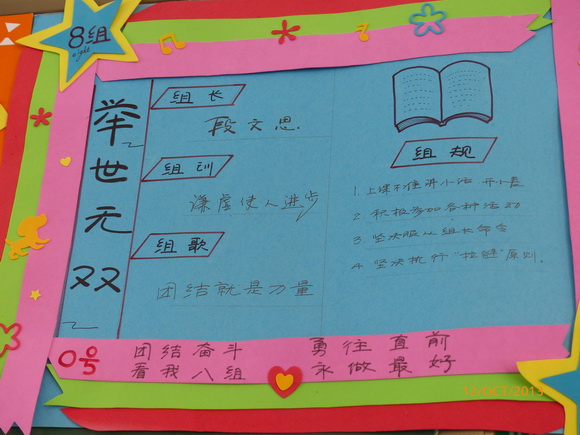 8组
eight
举世无双
组长
段文思
组训
谦虚使人进步
组歌
团结就是力量
组规
1. 上课不准讲小话 开小差
2. 积极参加各种活动
3. 坚决服从组长命令
4. 坚决执行" "原则.
口号
团结奋斗 勇往直前
看我八组 永做最好
12/OCT/2013